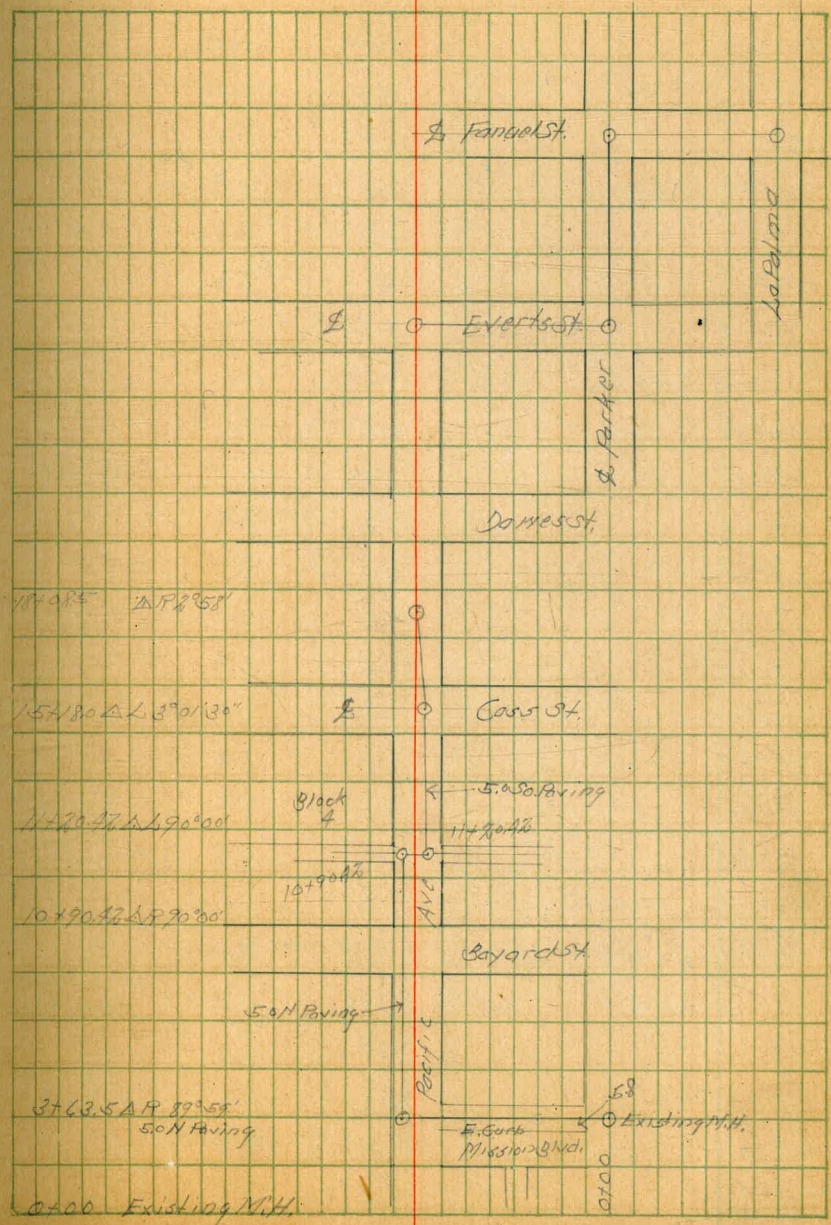 ℄ Fanuel St.
La Palma
℄ Everts St.
℄ Parker
Dawes St.
18+08.5 △ R 2°58'
15+18.0 △ L 3°01'30"
℄ Cass St.
5.0 So. Paving
Block
4
11+20.42 △ L 90°00'
11+20.42
10+90.42
Ave
10+90.42 △ R 90°00'
Bayard St.
5.0 N Paving
Pacific
3+63.5 △ R 89°59'
5.0 N Paving
5.8
Existing M.H.
E. Curb
Mission Blvd.
0+00
0+00 Existing M.H.